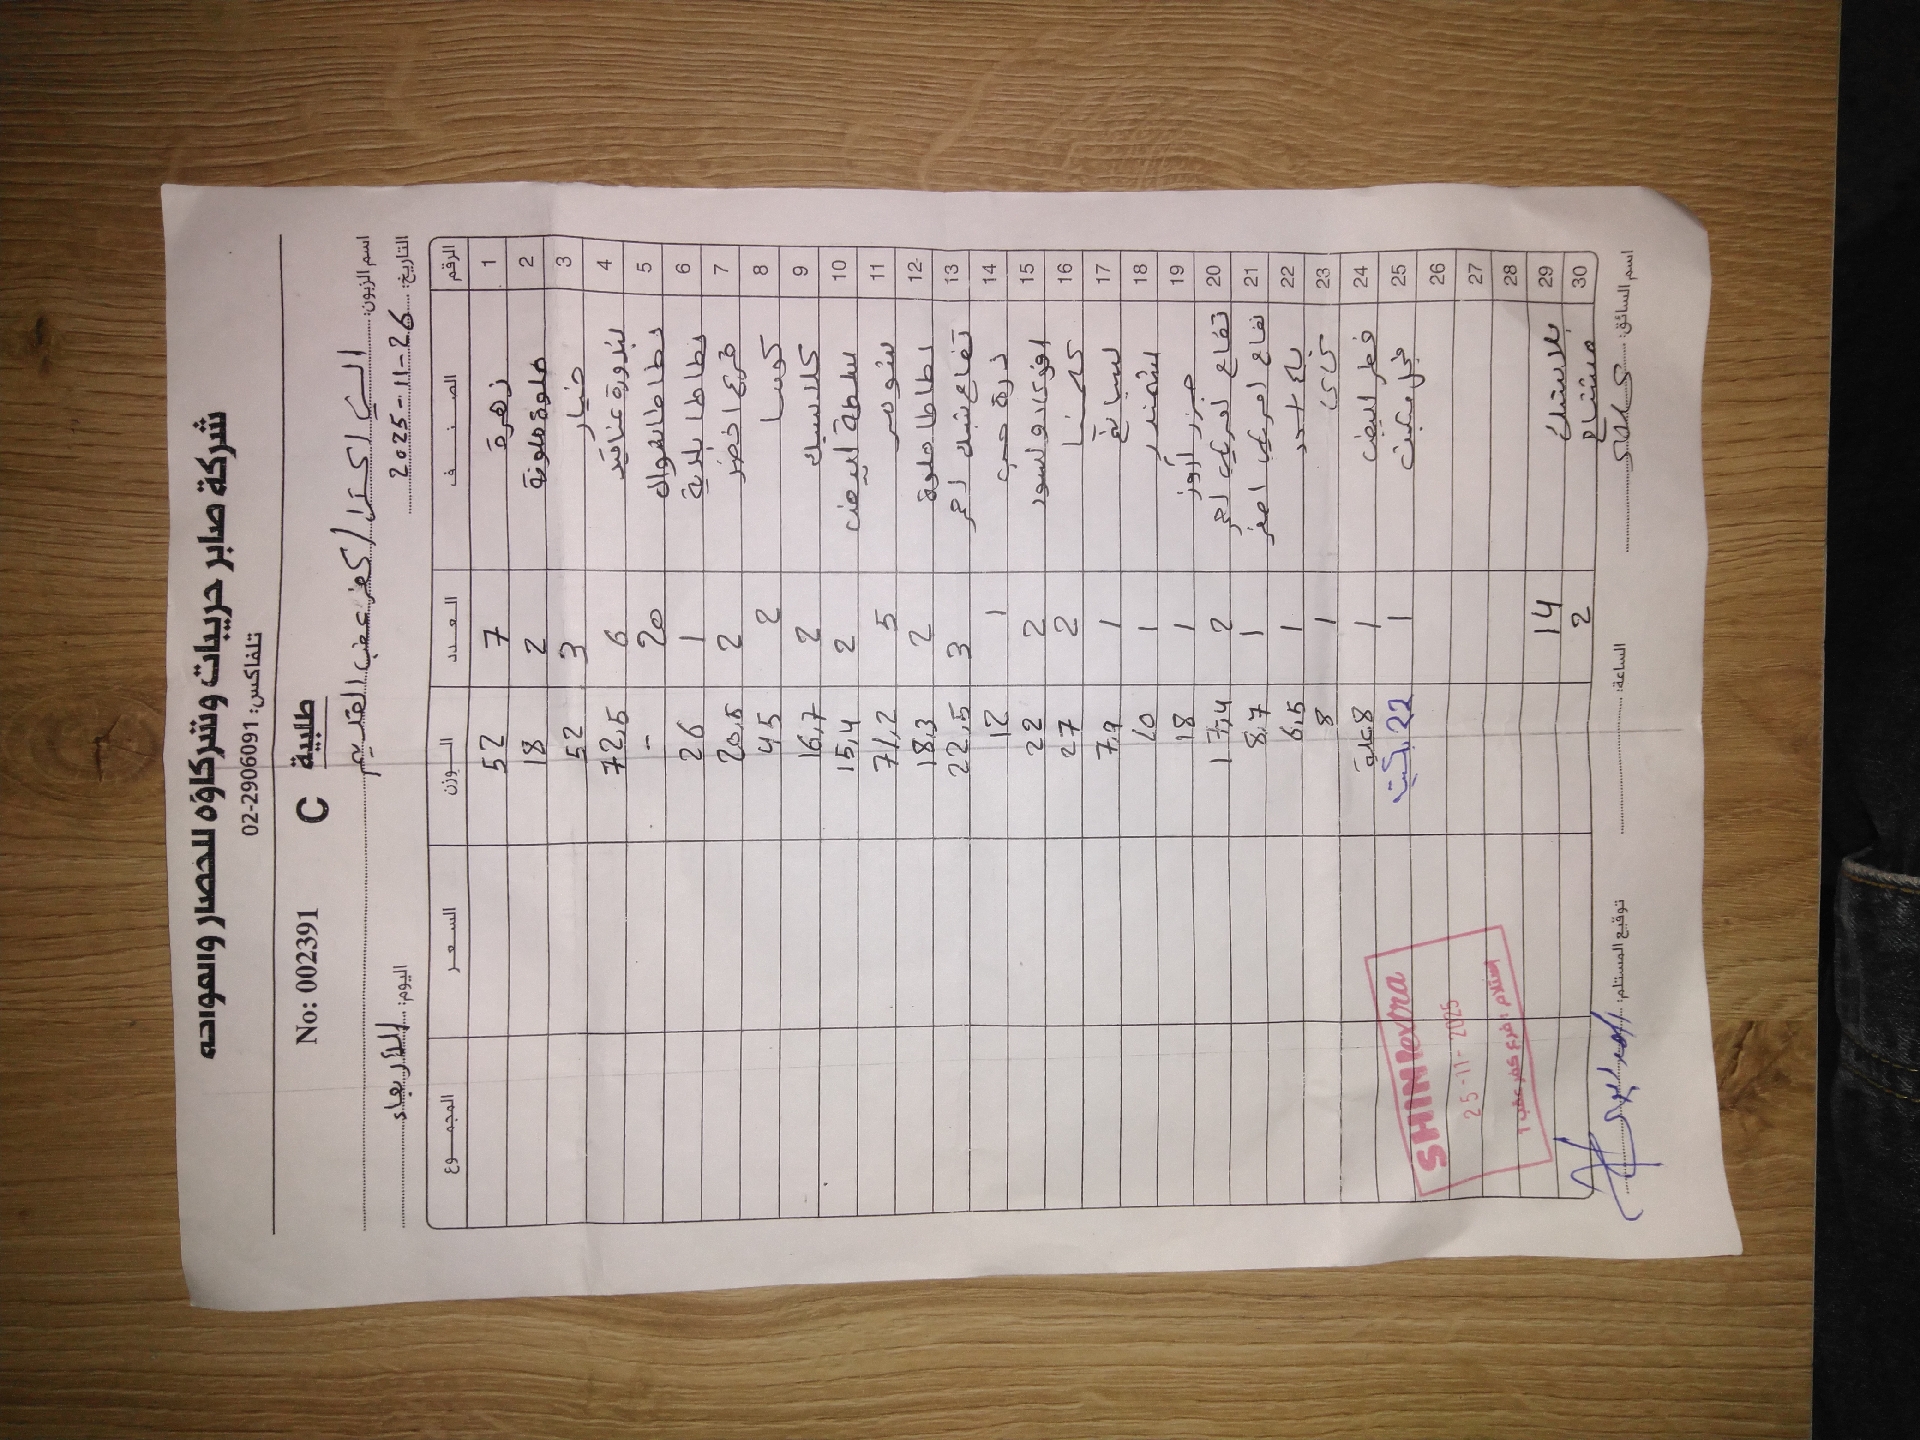 شركة صابر حريبات وشركاؤه للخضار والفواكه
تلفاكس: 02-2906091
No: 002391 C طلبية
اسم الزبون: الشني اكسترا / كفر عقب القديم
التاريخ: 2025-11-26 اليوم: الأربعاء
الرقم الصنف العدد الوزن السعر المجموع
1 زهرة 7 52
2 حلوة ملونة 2 18
3 خيار 3 52
4 بندورة عناقيد 6 72,5
5 بطاطا طوال 20 -
6 بطاطا بلدية 1 26
7 قرع اخضر 2 20,5
8 كوسا 2 45
9 كلاسيك 2 16,7
10 بصلة أبيض 2 15,4
11 شومر 5 71,2
12 بطاطا حلوة 2 18,3
13 تفاح بنك احمر 3 22,5
14 ذرة حب 1 12
15 افوكادو اسود 2 22
16 كرمنتينا 2 27
17 سبانخ 1 7,9
18 شمندر 1 10
19 جزر أروز 1 18
20 تفاح امريكي احمر 2 17,4
21 تفاح امريكي اصفر 1 8,7
22 1 6,5
23 1 8
24 فطر ابيض 1 8 علبة
25 فجل مكبت 1 22 بكيت
26
27
28
29 بلاستيك 14
30 مشتاح 2
اسم السائق: الساعة: توقيع المستلم:
SHINI extra
25-11-2025
استلام / فرع كفر عقب 1